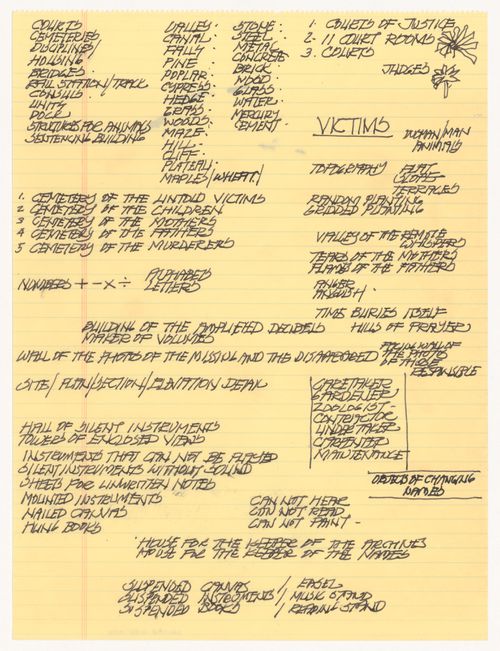 COURTS
CEMETERIES
DISCIPLINES/
HOUSING
BRIDGES.
RAIL STATION/TRACK
CONSULS
UNITS
DOCK
STRUCTURES FOR ANIMALS
SENTENCING BUILDING
VALLEY.
CANAL.
FALLS
PINE
POPLAR.
CYPRESS
HEDGE
GRASS
WOODS.
MAZE.
HILL.
CLIFF.
PLATEAU.
MAPLES/WHEAT/
STONE.
STEEL.
METAL
CONCRETE
BRICK.
WOOD.
GLASS
WATER.
MERCURY
CEMENT.
1. COURTS OF JUSTICE
2. 11 COURT ROOMS
3. COURTS
JUDGES
VICTIMS
WOMAN/MAN
ANIMALS
TOPOGRAPHY FLAT
SLOPE
TERRACES
RANDOM PLANTING
GRIDDED PLANTING
1. CEMETERY OF THE UNTOLD VICTIMS
2 CEMETERY OF THE CHILDREN
3 CEMETERY OF THE MOTHERS
4 CEMETERY OF THE FATHERS
5 CEMETERY OF THE MURDERERS
VALLEY OF THE REMOTE
WHISPERS
TEARS OF THE MOTHERS
FLAMES OF THE FATHERS
ANGER
ANGUISH.
NUMBERS + - × ÷
ALPHABETS
LETTERS
TIME BURIES ITSELF
HILLS OF PRAYER
BUILDING OF THE AMPLIFIED DECIBELS
MAKER OF VOLUMES
WALL OF THE PHOTOS OF THE MISSING AND THE DISAPPEARED
FACING WALL OF
THE PHOTO
OF THOSE
RESPONSIBLE
SITE/PLAN/SECTION/ELEVATION DETAIL
CARETAKER
GARDENER
ZOOLOGIST
CONTRACTOR
UNDERTAKER
CARPENTER
MAINTENANCE
HALL OF SILENT INSTRUMENTS
TOWERS OF ENCLOSED VIEWS
INSTRUMENTS THAT CAN NOT BE PLAYED
SILENT INSTRUMENTS WITHOUT SOUND
SHEETS FOR UNWRITTEN NOTES
MOUNTED INSTRUMENTS
NAILED CANVAS
HUNG BOOKS
OBJECTS OF CHANGING
NAMES
CAN NOT HEAR
CAN NOT READ
CAN NOT PAINT.
HOUSE FOR THE KEEPER OF THE ARCHIVES
HOUSE FOR THE KEEPER OF THE NAMES
SUSPENDED CANVAS / EASEL
SUSPENDED INSTRUMENTS / MUSIC STAND
SUSPENDED BOOKS / READING STAND